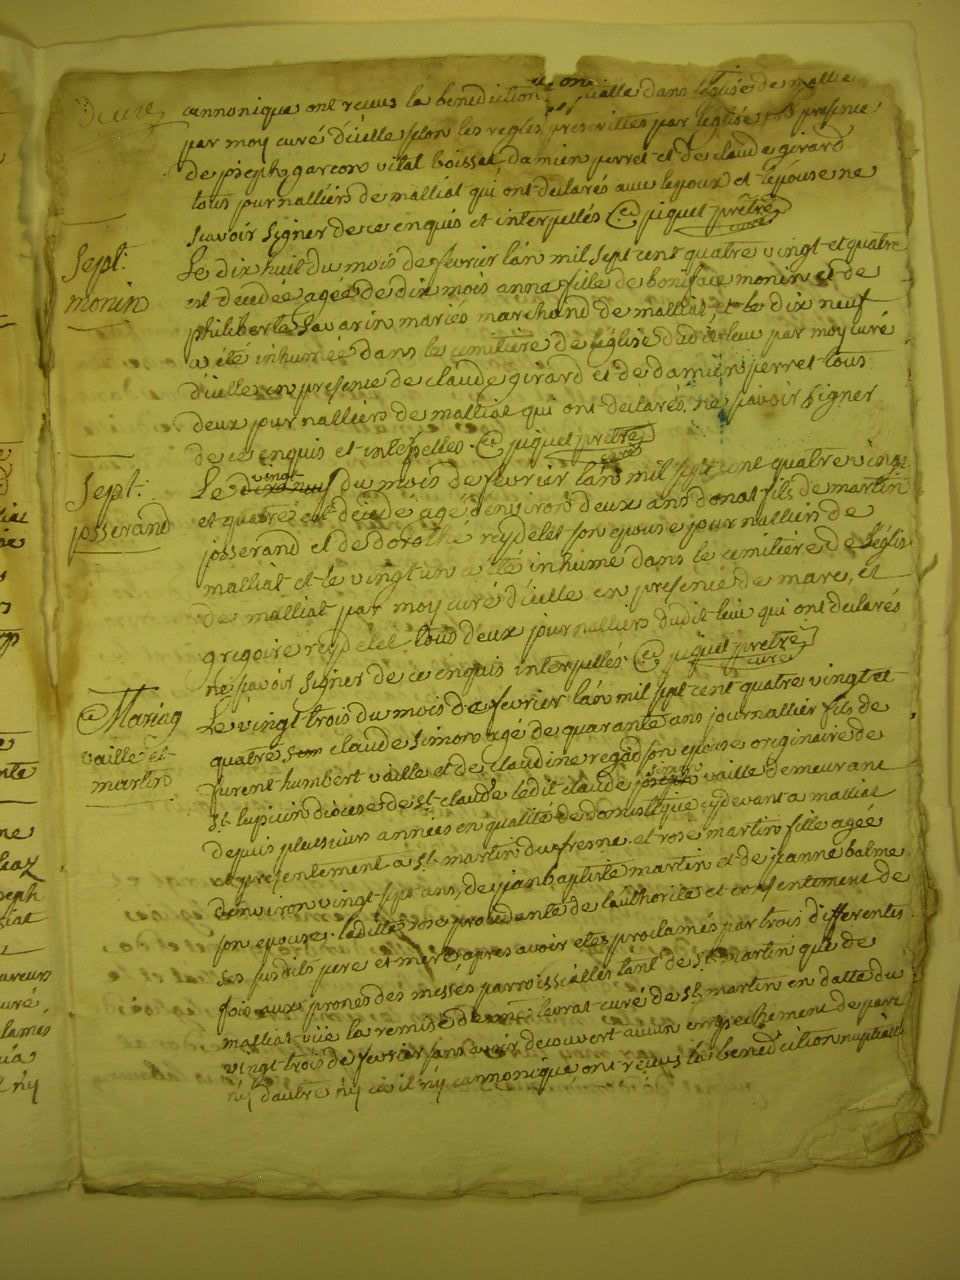 cannonique ont reçus la benediction nuptialle dans l'eglise de malliat
par moy curé d'icelle selon les regles prescrittes par l'eglise en presence
de joseph garcon vital boisset damien perret et de claude girard
tous journalliers de malliat qui ont declarés avec l'epoux et l'epouse ne
scavoir signer de ce enquis et interpellés piquet prêtre
curé
Sept.
monin
Le dix huit du mois de fevrier l'an mil sept cent quatre vingt et quatre
est decedée agée de dix mois anne fille de boniface monin et de
philiberte Savarin mariés marchand de malliat et le dix neuf
a été inhumée dans le cemitiere de l'église dudit lieu par moy curé
d'icelle en presence de claude girard et de damien perret tous
deux journalliers de malliat qui ont declarés ne scavoir signer
de ce enquis et interpelles. piquet prêtre
curé
Sept.
josserand
Le vingt du mois de fevrier l'an mil sept cent quatre vingt
et quatre est décédé agé d'environ deux ans donat fils de martin
josserand et de dorothé reydelet son epouse journallier de
malliat et le vingt un a été inhumé dans le cemitiere de l'églis
de malliat par moy curé d'icelle en presence de marc, et
gregoire reydelet tous deux journalliers dudit lieu qui ont declarés
ne scavoir signer de ce enquis interpellés piquet prêtre
curé
Mariag
vaille et
martin
Le vingt trois du mois de fevrier l'an mil sept cent quatre vingt et
quatre claude simon agé de quarante ans journallier fils de
furent humbert vaille et de claudine regad son epouse originaire de
st. lupicin diocese de st. claude ledit claude simon vaille demeurant
depuis plusieurs années en qualité de domestique cydevant a malliat
et presentement a st. martin du fresne et rose martin fille agée
d'environ vingt sept ans, de jean baptiste martin et de jeanne balme
son epouse. ladite rose procedante de l'authorité et consentiment de
ses susdits pere et mere apres avoir etes proclamés par trois differentes
fois aux prones des messes parroissialles tant de st. martin que de
malliat vüe la remise de mr. levrat curé de st. martin en datte du
vingt trois de fevrier sans avoir decouvert aucun empechement de part
nÿ d'autre nÿ civil nÿ cannonique ont reçus la benediction nuptialle